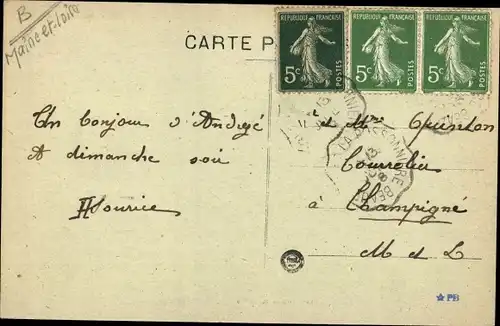 B
Maine-et-Loire
CARTE P
REPUBLIQUE FRANÇAISE
5c
POSTES
REPUBLIQUE FRANÇAISE
5c
POSTES
REPUBLIQUE FRANÇAISE
5c
POSTES
Un bonjour d'Andigé
A dimanche soir
Maurice
et Mme Quinton
Bourrelier
à Champigné
M et L
PB